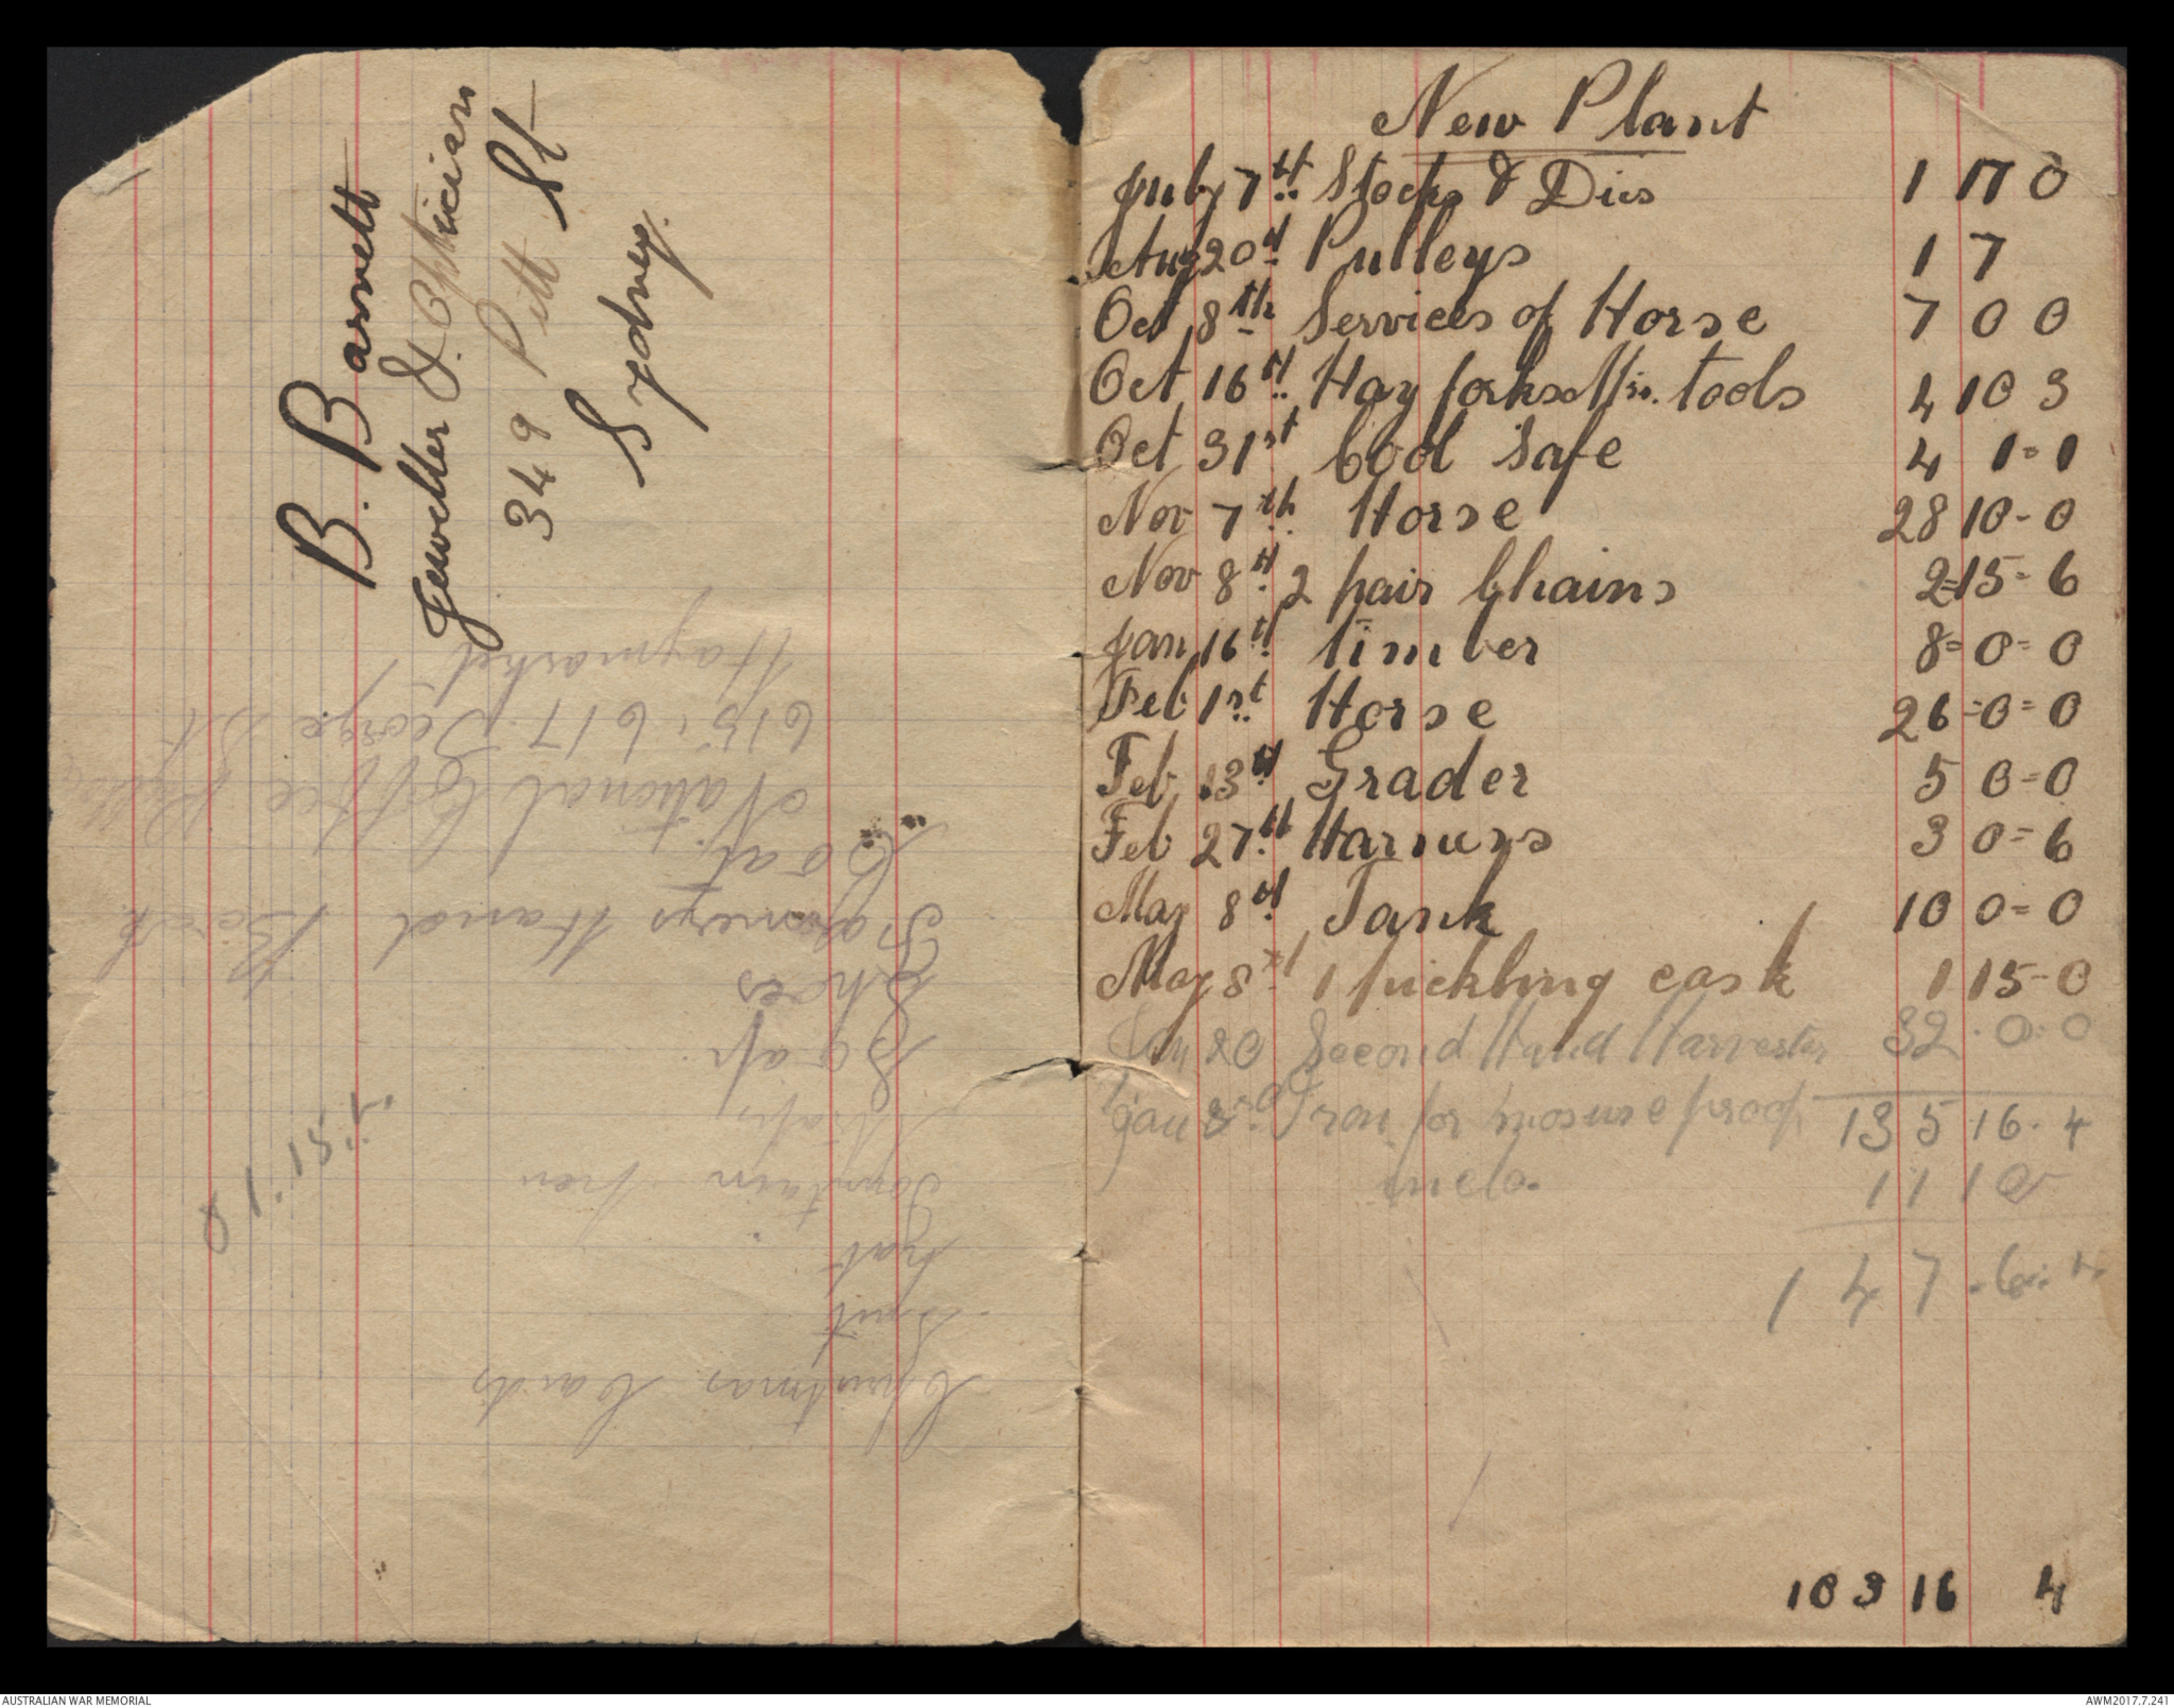 B. Barnett
Jeweller & Optician
349 Pitt St
Sydney.
Christmas Cards
Suit
hat
Fountain Pen
Straps
Soap.
Shoes
Farmers Hand Book
Coat
National Coffee
615 & 617 George St
Haymarket
81.15.
New Plant
July 7th Stocks & Dies 1 17 0
Aug 20th Pulleys 1 7
Oct 8th Services of Horse 7 0 0
Oct 16th Hay forks tools 4 10 3
Oct 31st Cool Safe 4 1=1
Nov 7th Horse 28 10-0
Nov 8th 2 pair Chains 2=15=6
Jan 16th timber 8=0=0
Feb 1st Horse 26=0=0
Feb 13th Grader 5 0=0
Feb 27th Harneys 3 0=6
May 8th Tank 10 0=0
May 8th 1 pickling cask 1 15-0
20 Second Hand Harvester 32.0.0
Jan Iron for mouse proof 135 16.4
11 10
147.6.4
103 16 4
AUSTRALIAN WAR MEMORIAL
AWM2017.7.241